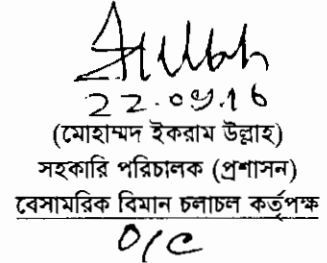 22.09.16
(মোহাম্মদ ইকরাম উল্লাহ)
সহকারি পরিচালক (প্রশাসন)
বেসামরিক বিমান চলাচল কর্তৃপক্ষ
O/C